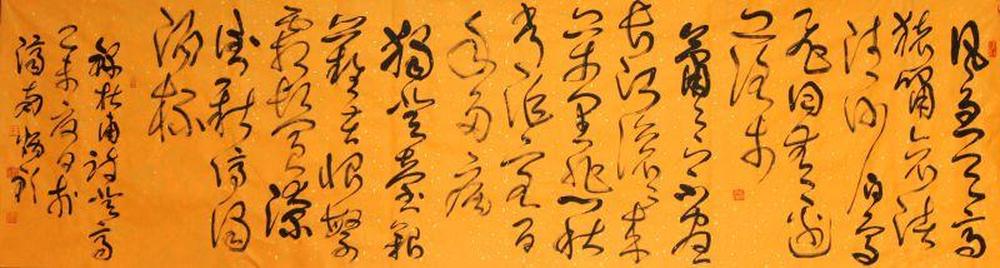 風急天高
猿嘯哀渚
清沙白鳥
飛回無邊
落木
蕭蕭下不盡
長江滾滾來
萬里悲秋
常作客百
年多病
獨登臺艱
難苦恨繁
霜鬢潦
倒新停濁
酒杯
杜甫詩登高
未夏月於
濟南